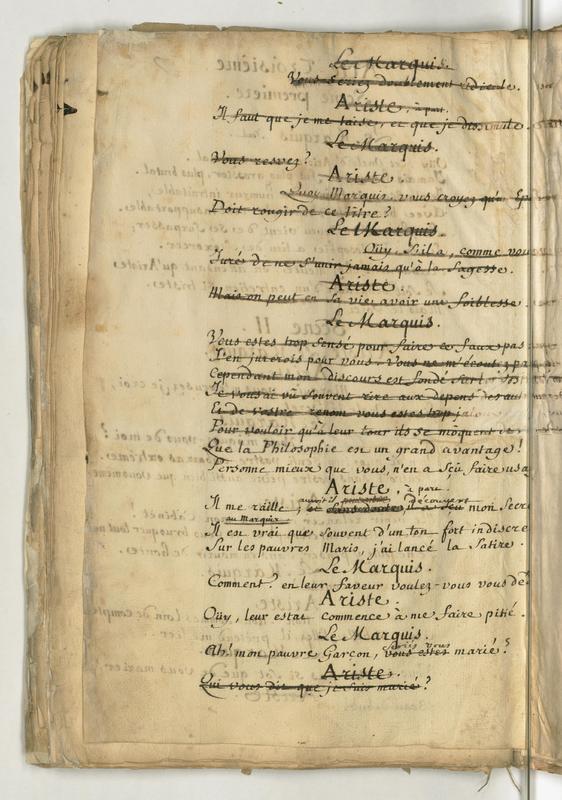 Le Marquis.
Vous seriez doublement ridicule.
Ariste, à part.
Il faut que je me taise, et que je dissimule.
Le Marquis.
Vous resvez?
Ariste.
Quoy Marquis, vous croyez qu'un
Doit rougir de ce titre?
Le Marquis.
Oüy, S'il a, comme vous
Juré de ne s'unir jamais qu'à la Sagesse.
Ariste.
Mais on peut en sa vie avoir une foiblesse.
Le Marquis.
Vous estes trop sensé pour faire ce faux pas
J'en jurerois pour vous. Vous ne m'écoutez pas
Cependant mon discours est fondé sur
Je vous ai vû souvent rire aux depens des
Et de vostre renom vous estes trop
Pour vouloir qu'à leur tour ils se mocquent de
Que la Philosophie est un grand avantage!
Personne mieux que vous, n'en a sçû faire
Ariste, à part.
Il me raille; et auroit-il découvert mon Secr
au Marquis
Il est vrai que souvent d'un ton fort indiscre
Sur les pauvres Maris, j'ai lancé la Satire.
Le Marquis.
Comment? en leur faveur voulez-vous vous
Ariste.
Oüy, leur estat commence à me faire pitié.
Le Marquis.
Ah! mon pauvre Garçon, vous estes marié?
Ariste.
Qui vous dit que je suis marié?